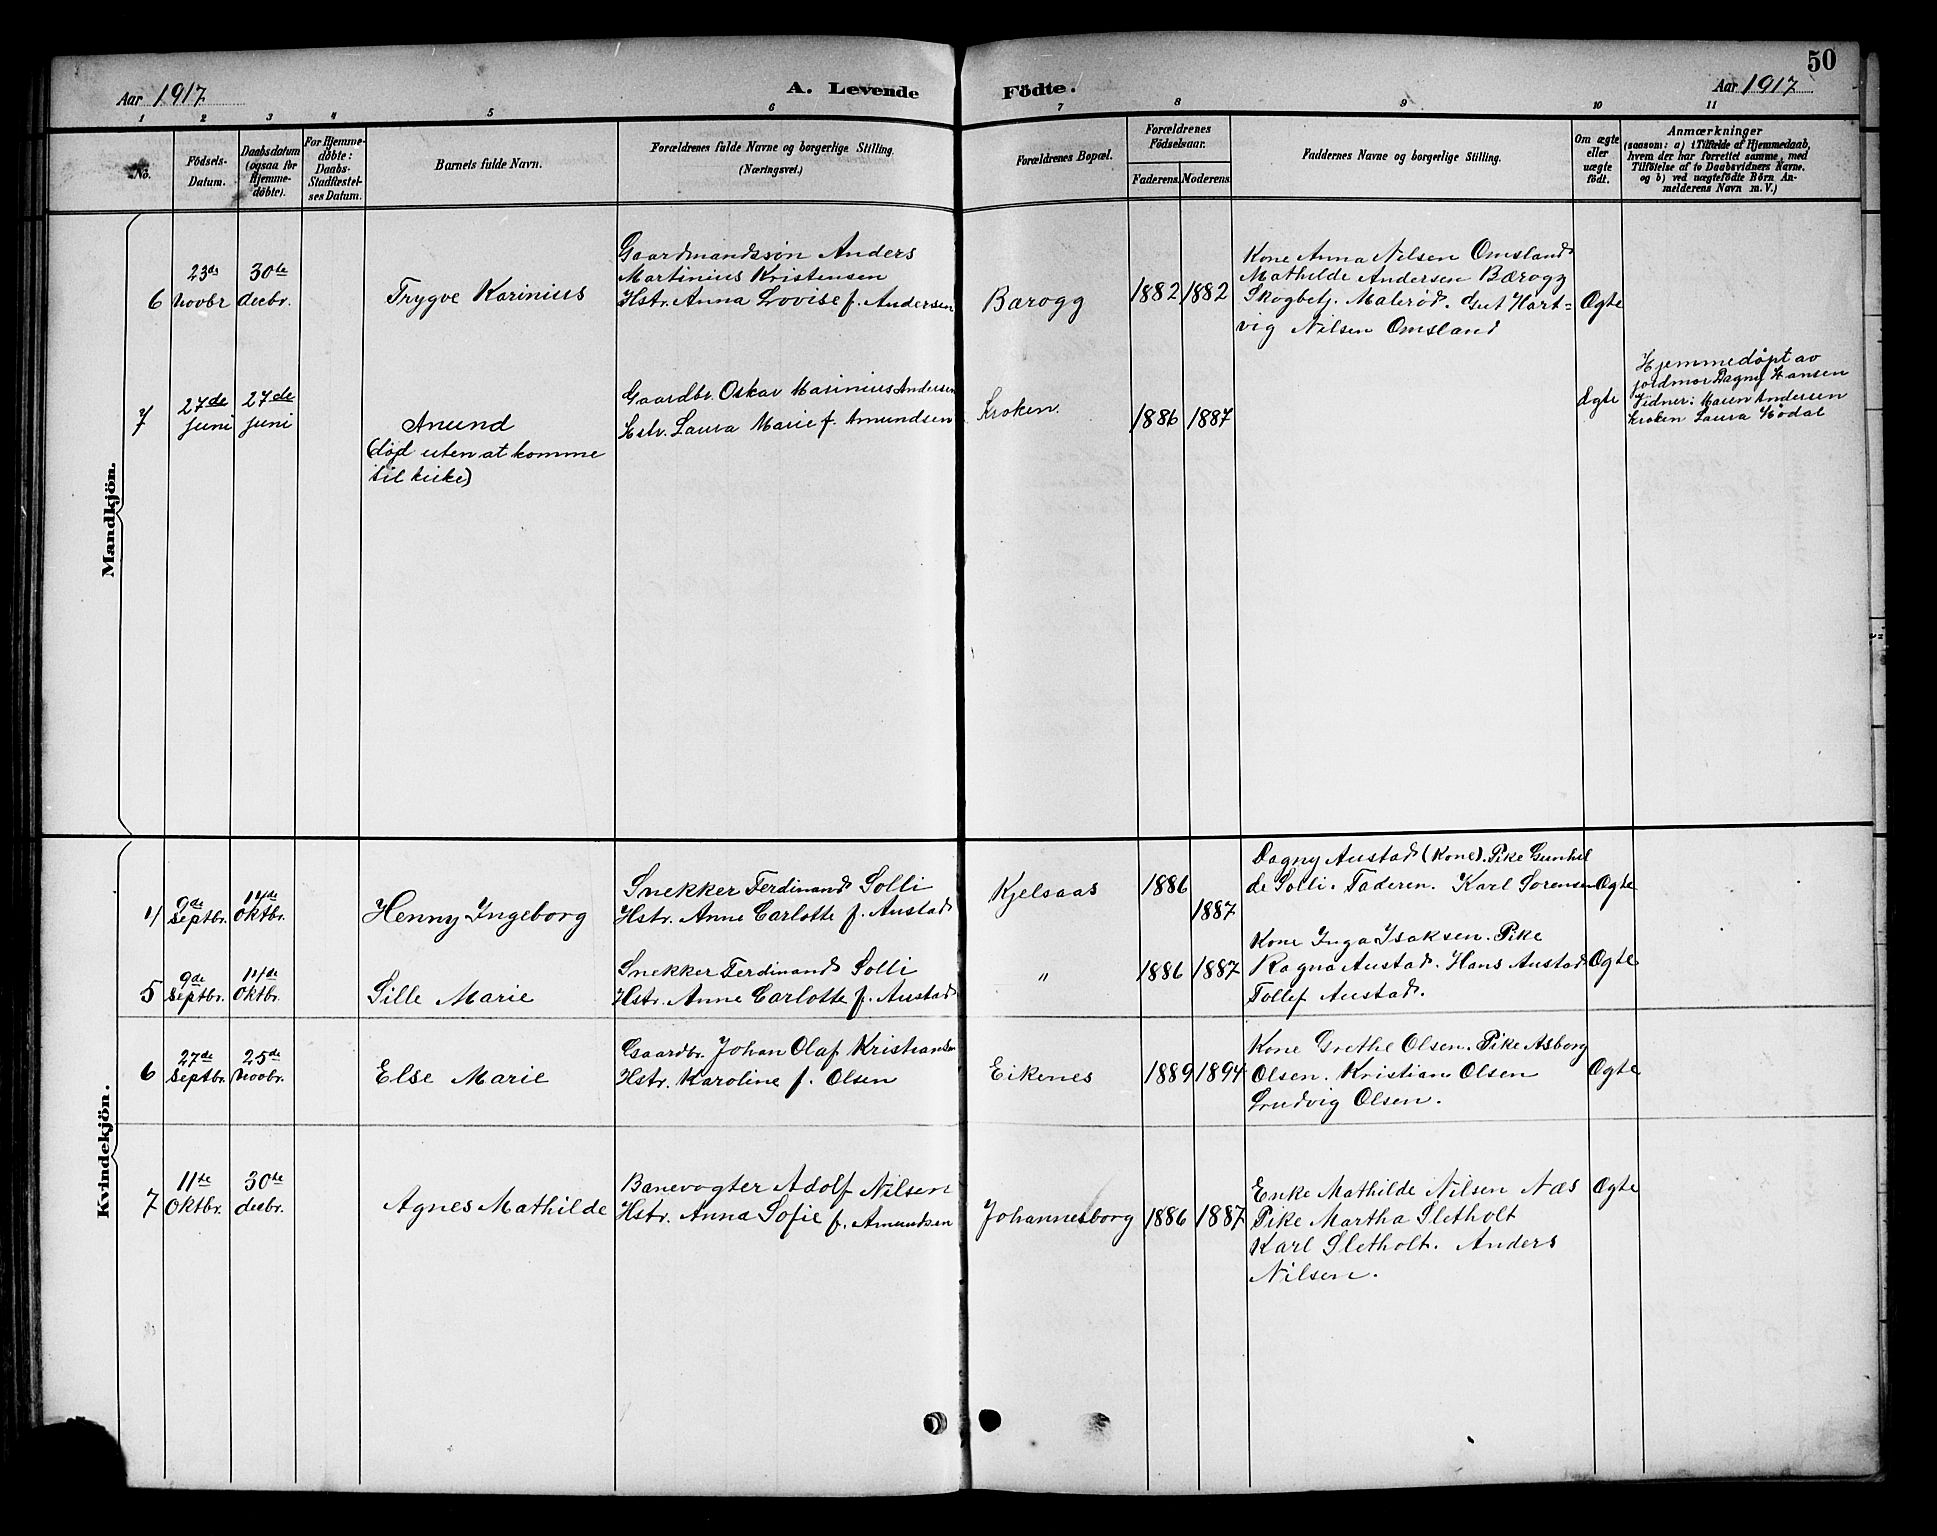 50
Aar 1917
A. Levende Födte.
Aar 1917
1 2 3 4 5 6 7 8 9 10 11
No.
Födsels-
Datum.
Daabsdatum
(ogsaa for
Hjemme-
döbte).
For Hjemme-
döbte:
Daabs-
Stadfæstel-
ses Datum.
Barnets fulde Navn.
Forældrenes fulde Navne og borgerlige Stilling.
(Næringsvei.)
Forældrenes Bopæl.
Forældrenes
Födselsaar.
Faderens. Moderens.
Faddernes Navne og borgerlige Stilling.
Om ægte
eller
uægte
født.
Anmærkninger
(saasom: a) i Tilfælde af Hjemmedaab,
hvem der har forrettet samme, med
Tilföielse af to Daabsvidners Navne.
og b) ved uægtefödte Börn An-
melderens Navn m. V.)
Mandkjön.
6
23de
novbr
30te
decbr.
Trygve Karinius
Gaardmandssön Anders
Martinius Kristensen
Hstr. Anna Lovise f. Andersen
Barogg
1882 1882
Kone Anna Nilsen Omsland
Mathilde Andersen Bærogg
Skogbetj. Malerød. Gut Hart=
vig Nilsen Omsland
Ægte
7
27de
juni
27de
juni
Anund
(død uten at komme
til kirke)
Gaardbr. Oskar Marinius Andersen
Hstr. Laura Marie f. Amundsen
Kroken.
1886 1887
Ægte
Hjemmedøpt av
jordmor Dagny Hansen
Vidner: Maren Andersen
Kroken Laura Hödal
Kvindekjön.
4
9de
Septbr.
14de
Oktbr.
Henny Ingeborg
Snekker Ferdinand Solli
Hstr. Anne Carlotte f. Austad
Kjelsaas
1886
1887
Dagny Austad (Kone). Pike Gunhil
de Solli. Faderen. Karl Sorensen
Ægte
5
9de
Septbr.
14de
Oktbr.
Sille Marie
Snekker Ferdinand Solli
Hstr. Anne Carlotte f. Austad
"
1886 1887
Kone Inga Isaksen. Pike
Ragna Austad. Hans Austad
Tollef Austad.
Ægte
6
27de
Septbr.
25de
Novbr.
Else Marie
Gaardbr. Johan Olaf Kristiansen
Hstr. Karoline f. Olsen
Eikenes
1889 1894
Kone Grethe Olsen. Pike Asborg
Olsen. Kristian Olsen
Ludvig Olsen.
Ægte
7
11te
Oktbr.
30te
decbr.
Agnes Mathilde
Banevogter Adolf Nilsen
Hstr. Anna Sofie f. Amundsen
Johannesborg
1886 1887
Enke Mathilde Nilsen Næs
Pike Martha Sletholt
Karl Sletholt. Anders
Nilsen.
Ægte